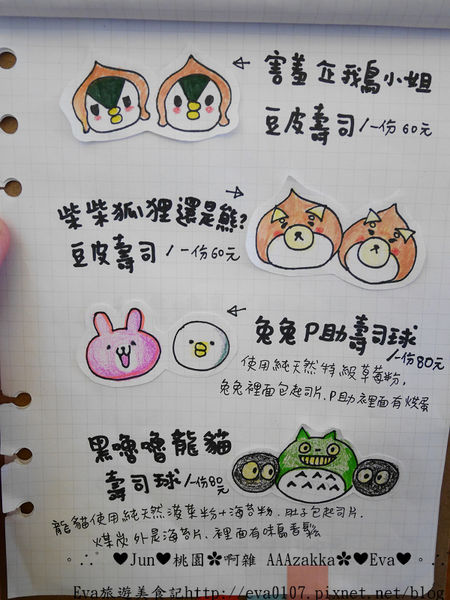 害羞企鵝小姐
豆皮壽司/一份60元
柴柴狐狸還是熊?
豆皮壽司/一份60元
兔兔P助壽司球
/一份80元
使用純天然特級草莓粉,
兔兔裡面包起司片.P助裡面有炒蛋
黑嚕嚕龍貓
壽司球/一份80元
龍貓使用純天然菠菜粉+海苔粉.肚子包起司片.
煤炭外是海苔片.裡面有味島香鬆
♥Jun♥桃園✿啊雜 AAAzakka✿♥Eva♥
Eva旅遊美食記http://eva0107.pixnet.net/blog